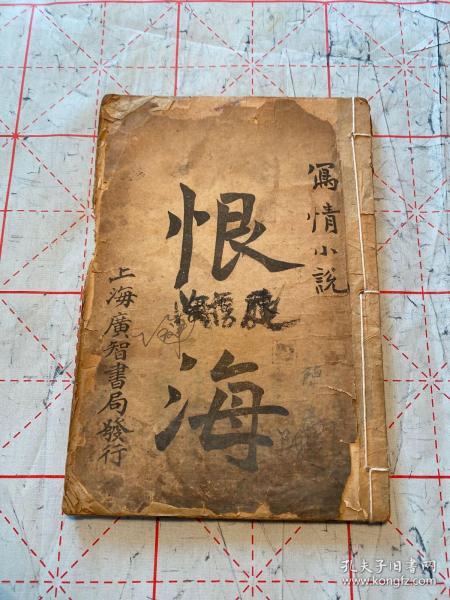 寫情小說
恨
海
上海廣智書局發行
孔夫子旧书网
www.kongfz.com